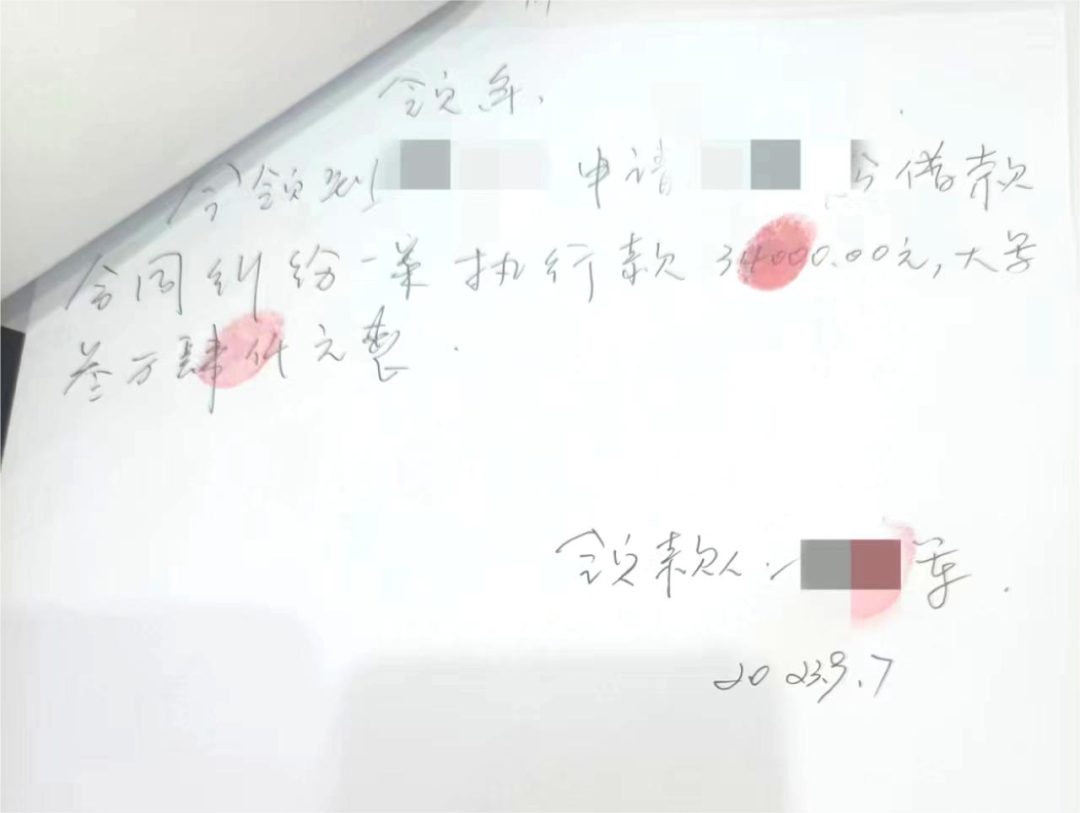 领条.
今领到 申请 借款
合同纠纷一案执行款34000.00元,大写
叁万肆仟元整.
领款人: 军.
2023.9.7